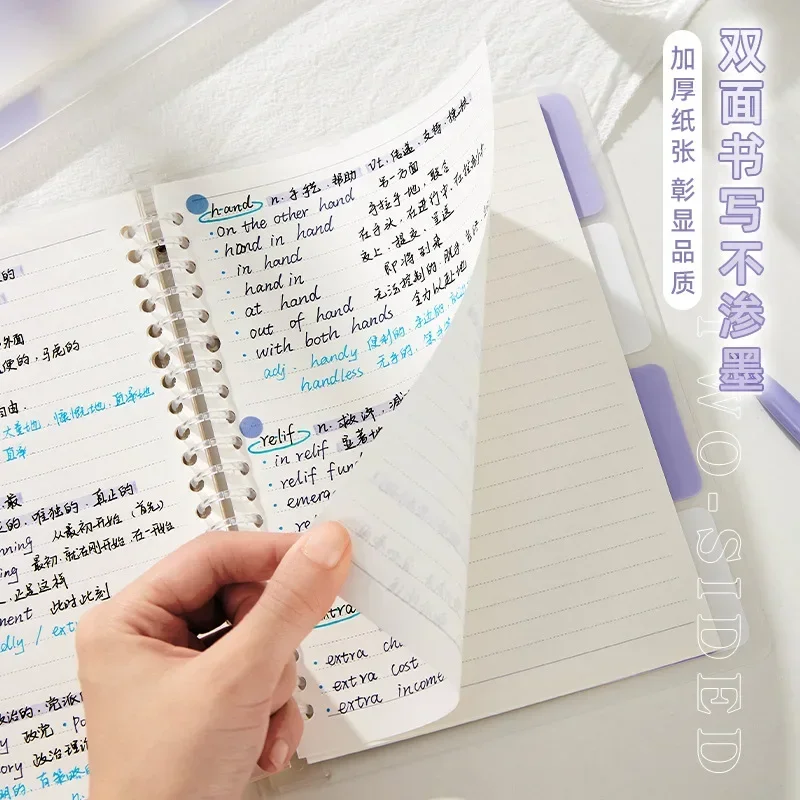 双面书写不渗墨
加厚纸张 彰显品质
TWO-SIDED
hand n. 手艺, 帮助 Vt. 传递, 支持, 搀扶
on the other hand 另一方面
hand in hand 手拉手地, 联合
in hand 在手头, 在进行中, 在控制中
hand in 交上, 提交, 呈送
at hand 即将到来
out of hand 无法控制的, 脱手,
with both hands 全力以赴地
adj. handy 便利的,
handless 无手的,
relif n. 救济, 减
in relif 显著地
relif fun
emerg
re
extra
extra ch
extra cost
extra income
的
外面
便的, 马虎的
自由.
大量地, 慷慨地, 直率地
直率
最
的, 唯独的, 真正的
nning 从最初开始 (首先)
ng 最初, 就在刚开始, 在一开始
, 正是这样
ment 此时此刻
dly / extr
政治的, 党派
y 政党 · po
ory 政治理论
明的, 有策略的